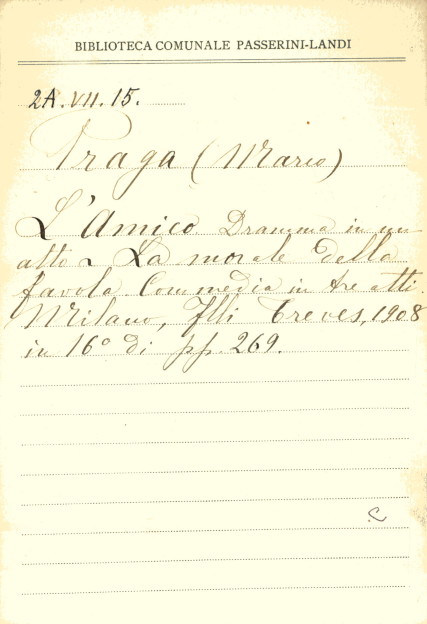 BIBLIOTECA COMUNALE PASSERINI-LANDI
2A.VII.15.
Praga (Mario)
L'Amico Dramma in un
atto - La morale della
favola Commedia in tre atti.
Milano, Flli Treves, 1908
in 16° di pp. 269.